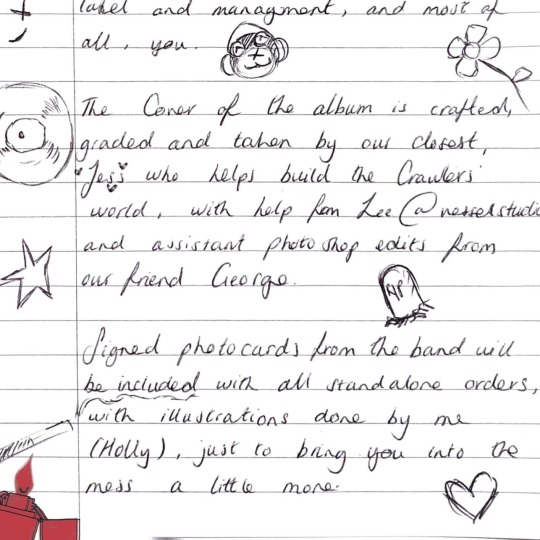 label and managment, and most of
all, you.
The Cover of the album is crafted,
graded and taken by our closest,
"Jess" who helps build the Crawlers'
world, with help from Lee (@nessestudio
and assistant photoshop edits from
our friend George.
RIP
Signed photocards from the band will
be included with all standalone orders,
with illustrations done by me
(Holly), just to bring you into the
mess a little more.